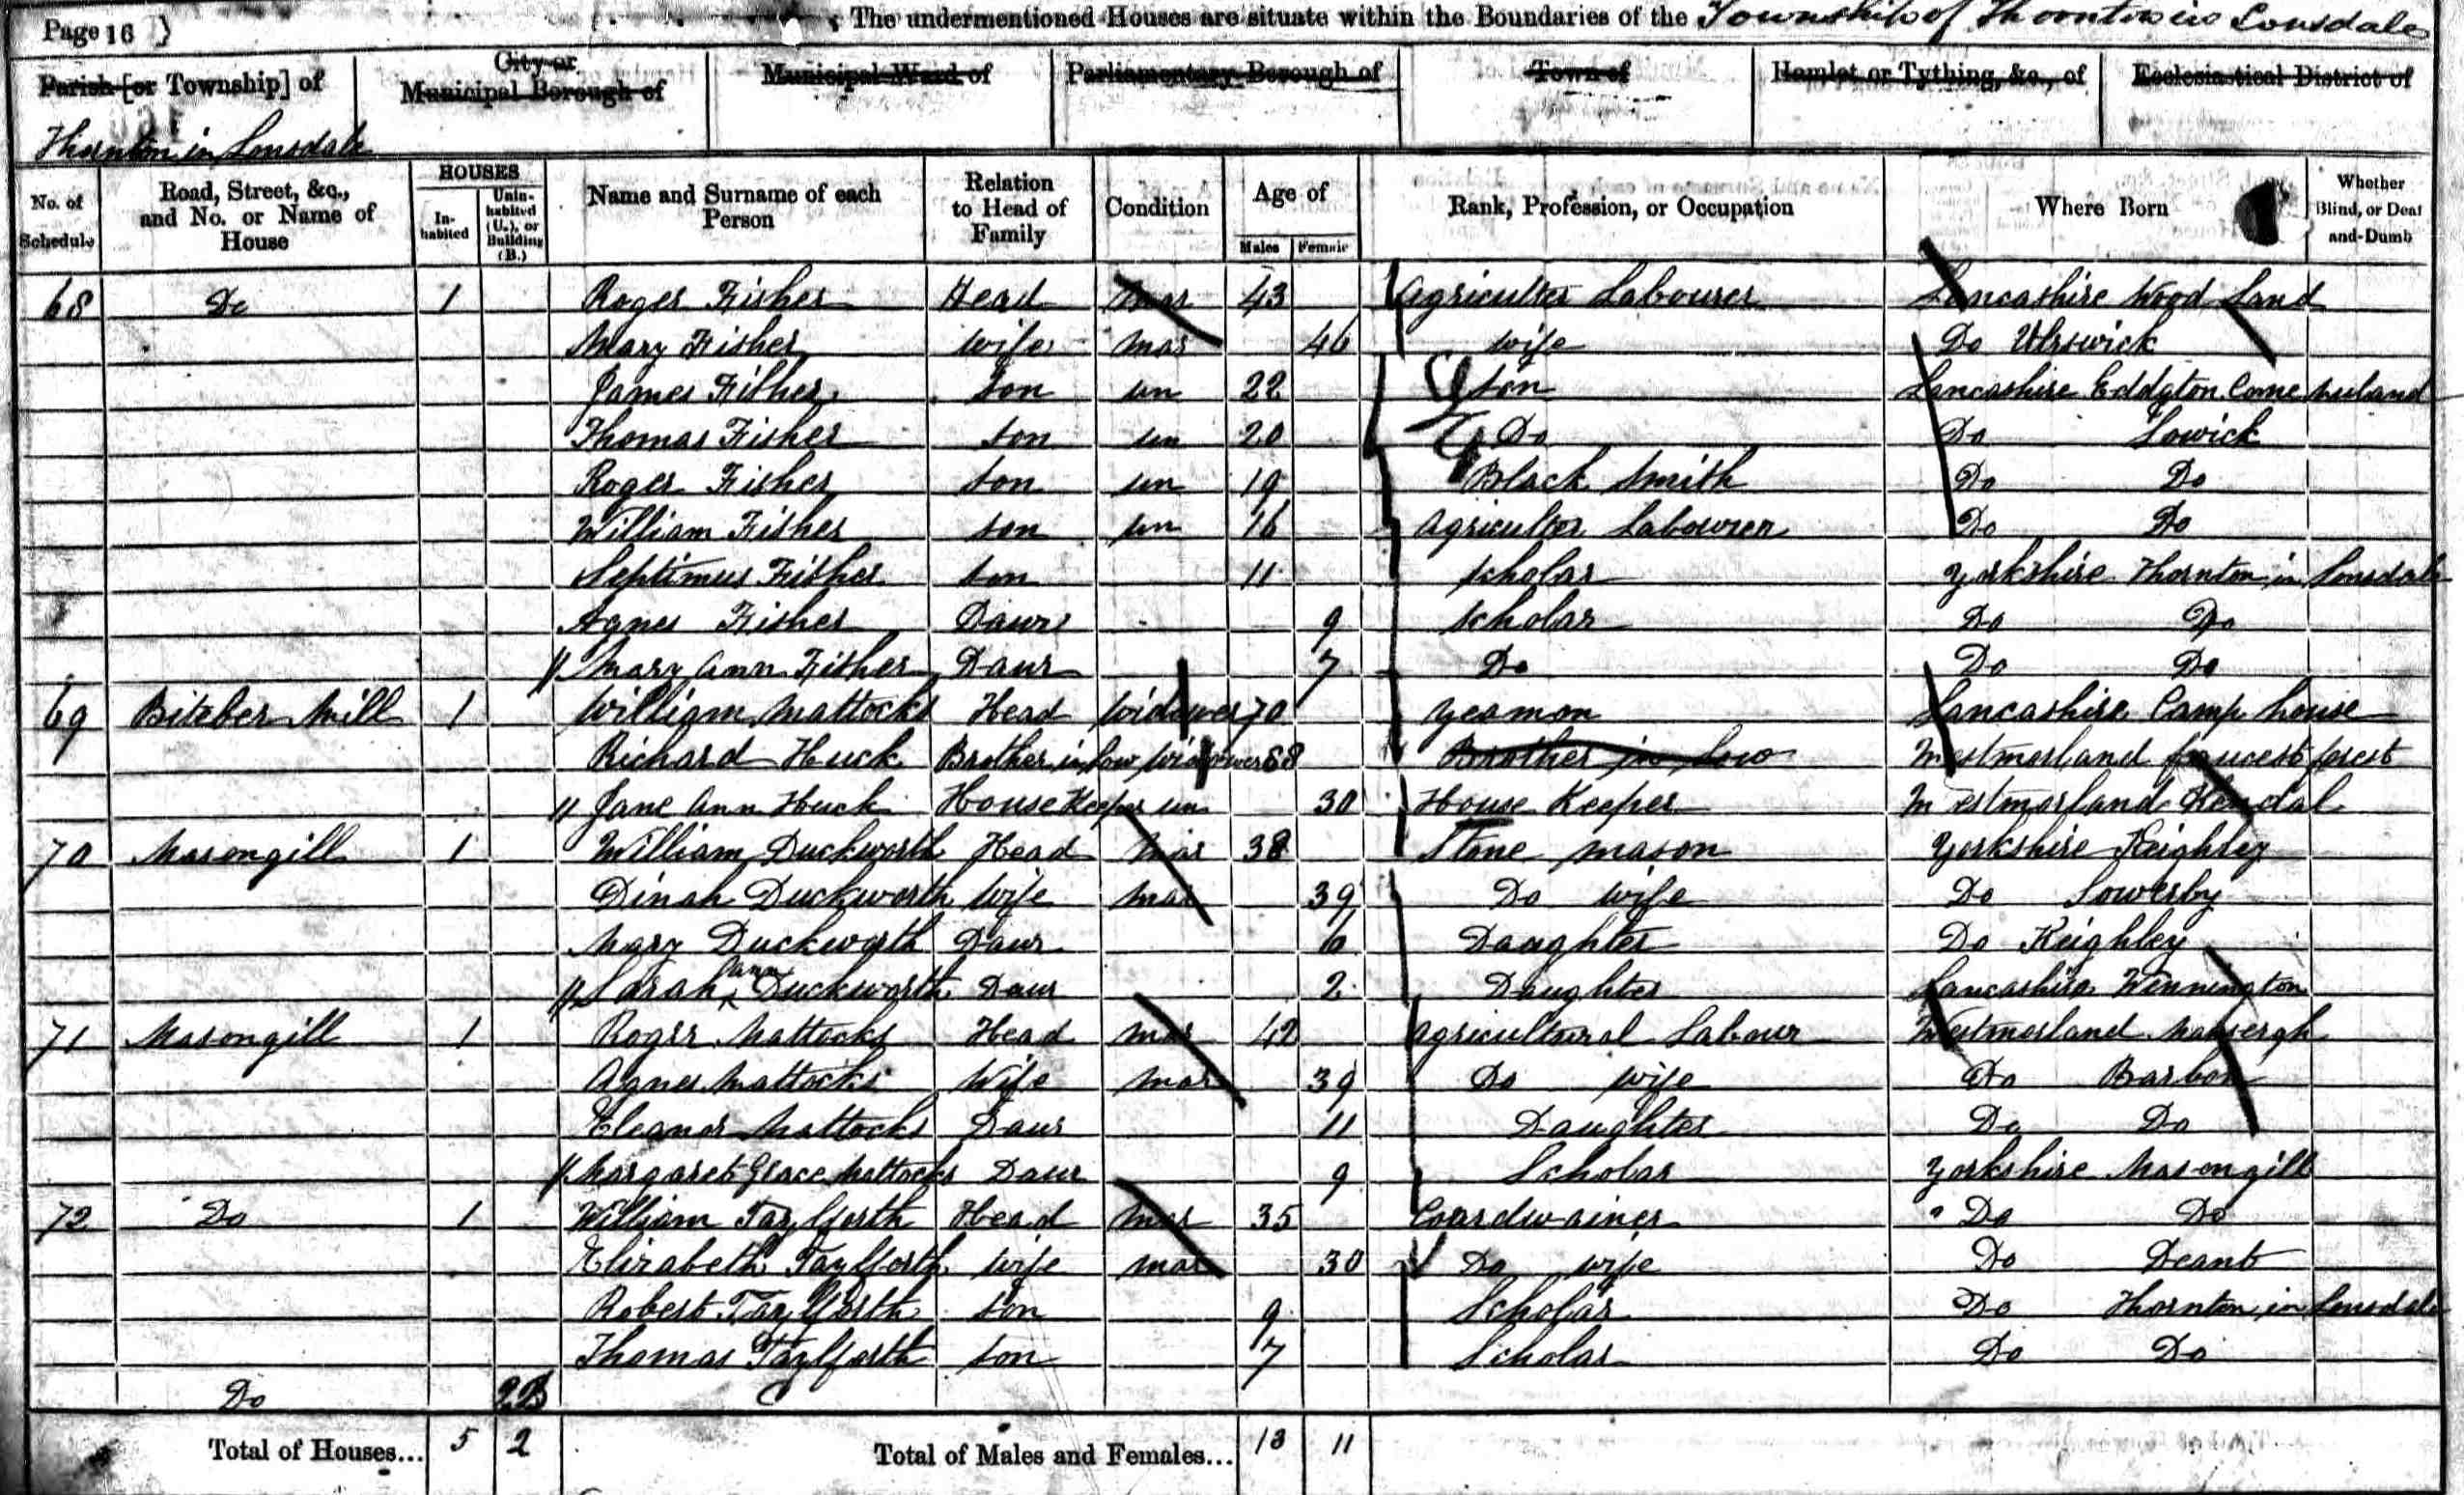 Page 16 } The undermentioned Houses are situate within the Boundaries of the Township of Thornton in Lonsdale
Parish [or Township] of
City or Municipal Borough of
Municipal Ward of
Parliamentary Borough of
Town of
Hamlet or Tything, &c., of
Ecclesiastical District of
Thornton in Lonsdale
No. of Schedule
Road, Street, &c., and No. or Name of House
HOUSES
In-habited
Unin-habited (U.), or Building (B.)
Name and Surname of each Person
Relation to Head of Family
Condition
Age of
Males Female
Rank, Profession, or Occupation
Where Born
Whether Blind, or Deaf and-Dumb
68 Do 1 Roger Fisher Head mar 43 Agriculter Labourer Lancashire Wood Land
Mary Fisher wife mar 46 wife Do Ulrswick
James Fisher son un 22 son Lancashire
Thomas Fisher son un 20 Do Do Lowick
Roger Fisher son un 19 Black Smith Do Do
William Fisher son un 16 Agricultor Labourer Do Do
Septimus Fisher son 11 scholar Yorkshire Thornton in Lonsdale
Agnes Fisher Daur 9 scholar Do Do
Mary Ann Fisher Daur 7 Do Do Do
69 Biteber Mill 1 William Mattocks Head widower 70 Yeamon Lancashire Camp house
Richard Huck Brother in law widower 68 Brother in law Westmorland forest
Jane Ann Huck House Keeper un 30 House Keeper Westmorland Kendal
70 Masongill 1 William Duckworth Head mar 38 Stone mason Yorkshire Keighley
Dinah Duckworth wife mar 39 Do wife Do Sowerby
Mary Duckworth Daur 6 Daughter Do Keighley
Sarah ann Duckworth Daur 2 Daughter Lancashire Wennington
71 Masongill 1 Roger Mattocks Head mar 42 Agricultural Labour Westmorland Mansergh
Agnes Mattocks Wife mar 39 Do wife Do Barbon
Eleanor Mattocks Daur 11 Daughter Do Do
Margaret Grace Mattocks Daur 9 Scholar Yorkshire Masongill
72 Do 1 William Taylforth Head mar 35 Coardwainer Do Do
Elizabeth Taylforth wife mar 30 Do wife Do Deant
Robert Taylforth son 9 Scholar Do Thornton in Lonsdale
Thomas Taylforth son 7 Scholar Do Do
Do 2B
Total of Houses... 5 2 Total of Males and Females... 13 11